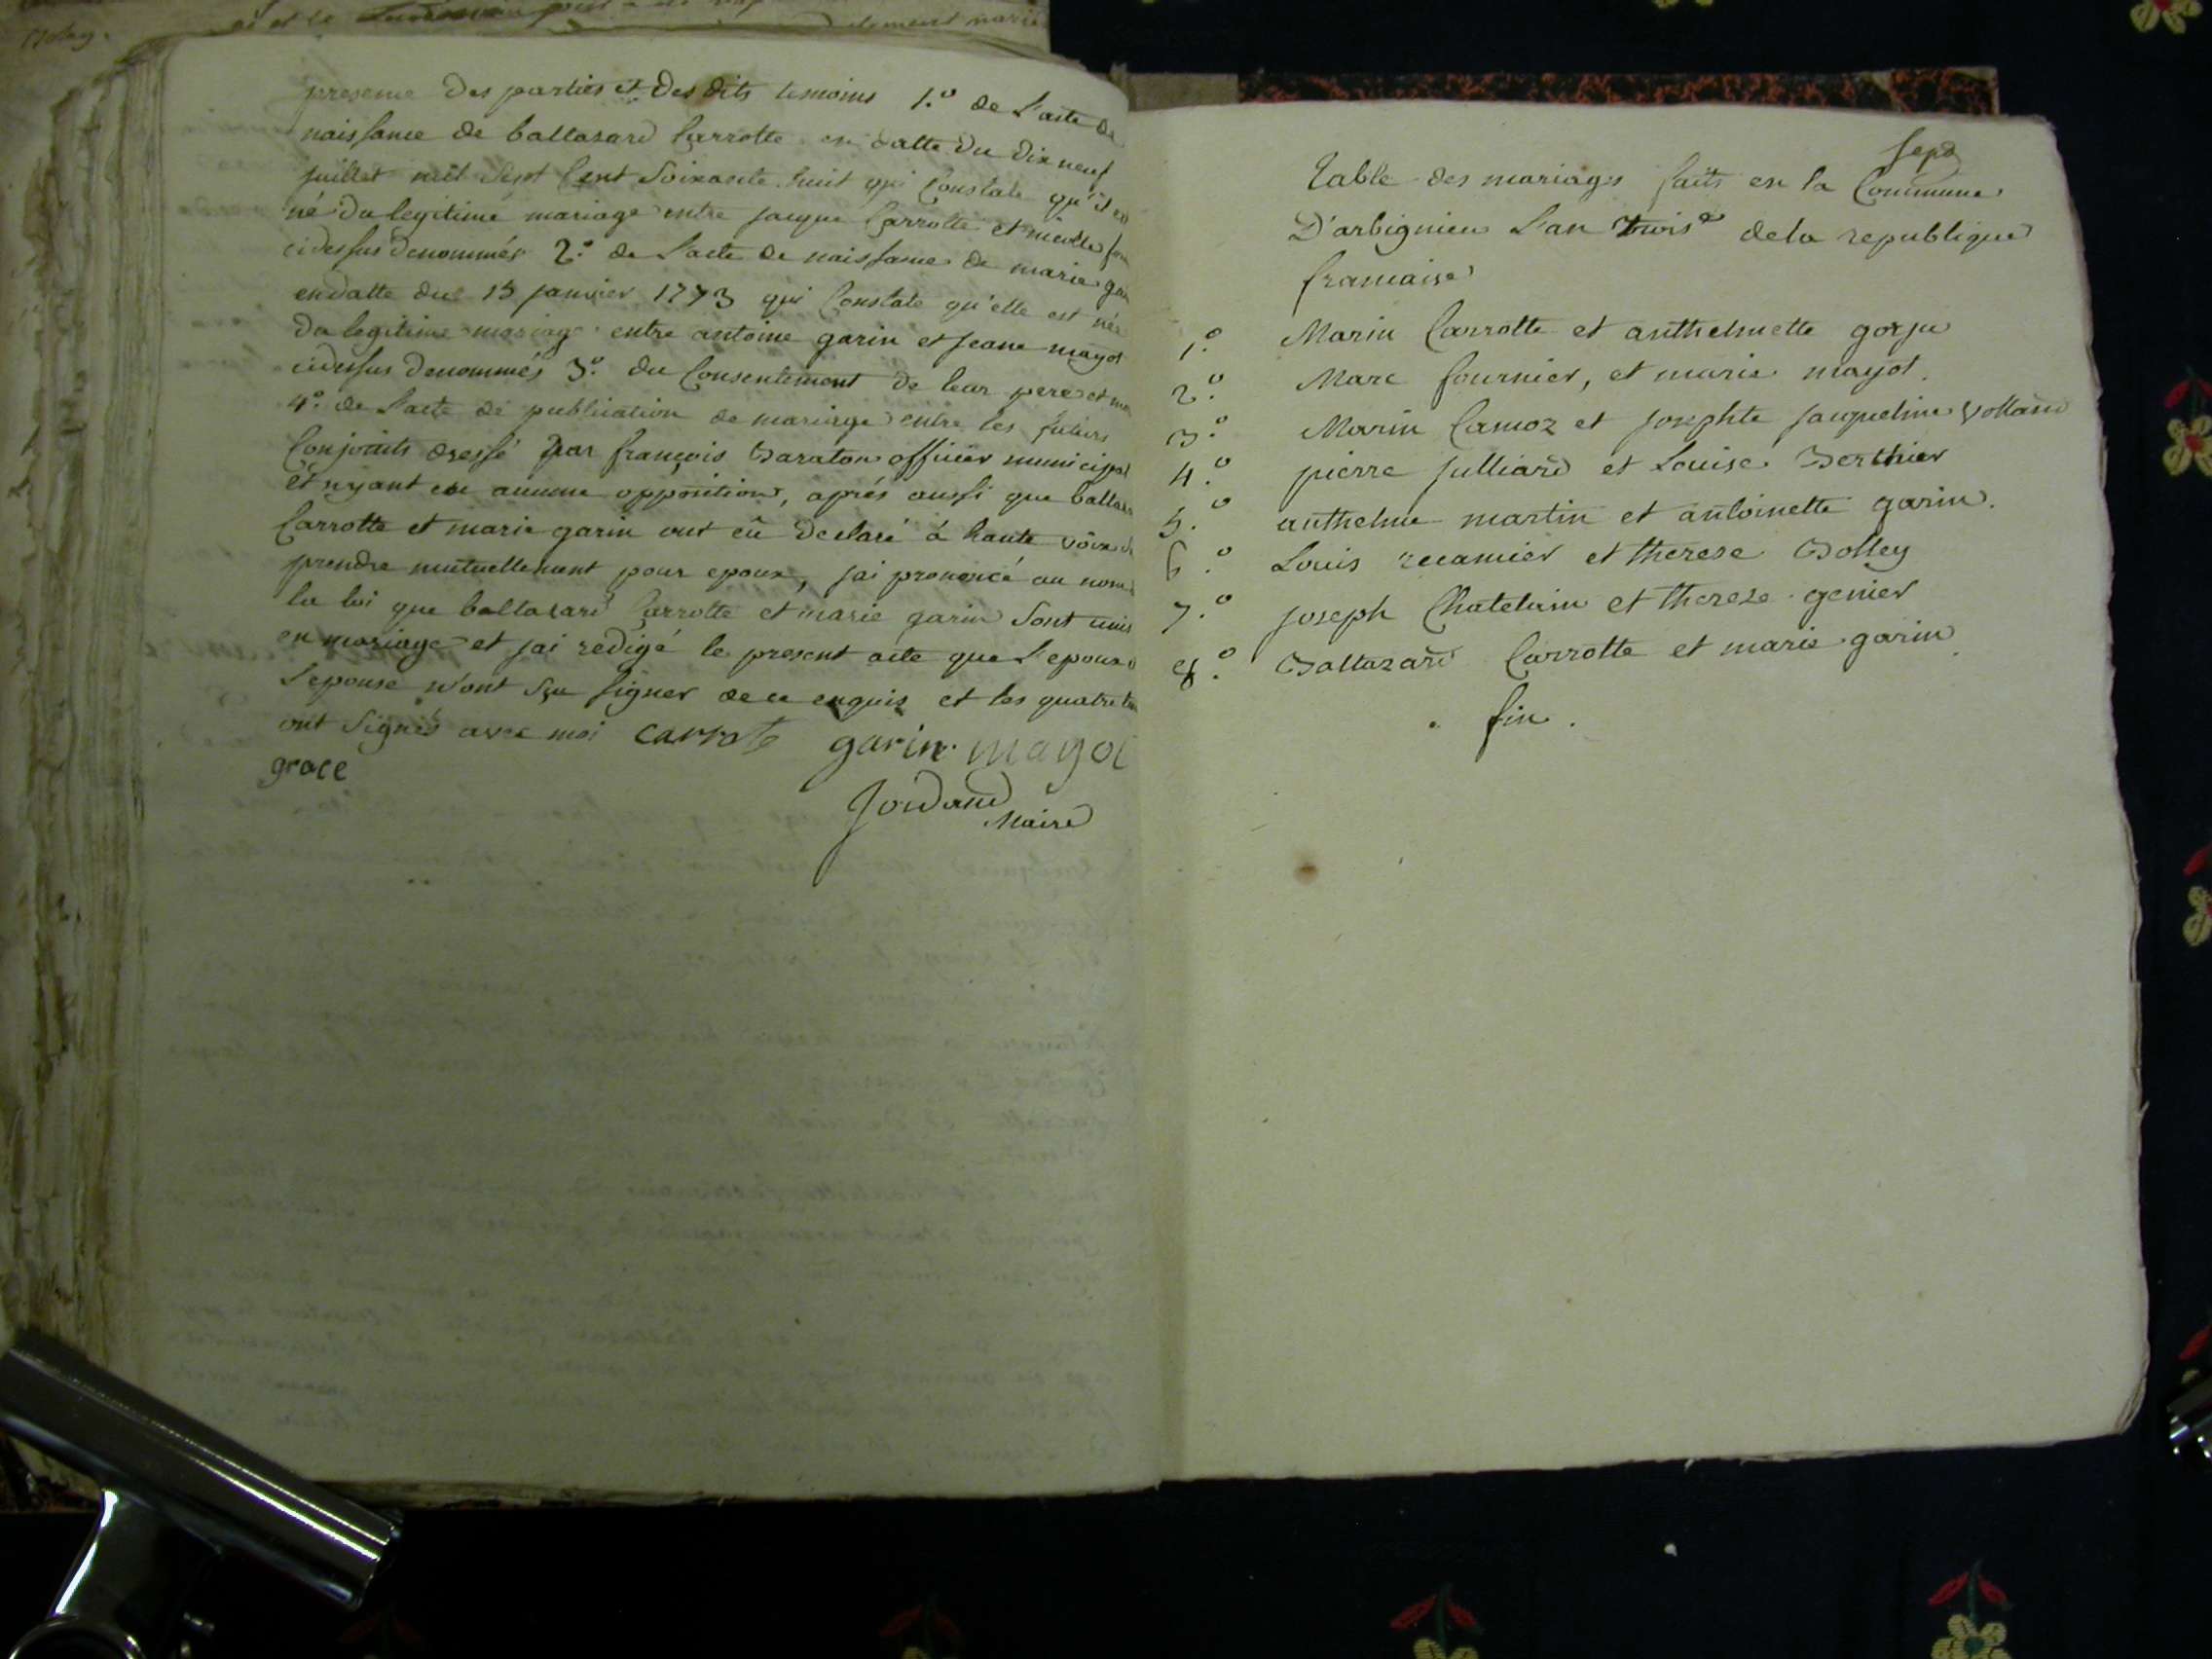 presence des parties et des dits temoins 1.° de l'acte de
naissance de baltazard Carrotte en datte du dix neuf
juillet mil sept Cent soixante huit qui Constate qu'il est
né du legitime mariage entre jacque Carrotte et
cidessus denommés 2.° de l'acte de naissance de marie
en datte du 13 janvier 1773 qui Constate qu'elle est née
du legitime mariage entre antoine garin et jeane mayot
cidessus denommés 3.° du Consentement de leur pere et
4.° de l'acte de publication de mariage entre les futurs
Conjoints dressé par françois Baraton officier municipal
et nyant eu aucune opposition, aprés aussi que
Carrotte et marie garin ont eû declaré à haute voix
prendre mutuellement pour epoux, jai prononcé au nom
la loi que baltazard Carrotte et marie garin sont unis
en mariage et jai redigé le present acte que l'epoux
l'epouse n'ont sçu signer de ce enquis et les quatre
ont signés avec moi carrote garin mayot
grace
Jordand
Maire
sepd
Table des mariages faits en la Commune
D'arbignieu L'an trois de la republique
francaise
1.° Marin Carrotte et anthelmette gorju
2.° Marc fournier, et marie mayot.
3.° Marin Camoz et josephte jacqueline vottand
4.° pierre julliard et Louise Berthier
5.° anthelme martin et antoinette garin.
6.° Louis recamier et therese Bolley
7.° joseph Chatelain et therese genier
8.° Baltazard Carrotte et marie garin.
. fin .